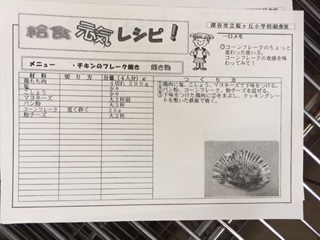 給食 元気レシピ！
深谷市立桜ヶ丘小学校給食室
一口メモ
コーンフレークのちょっと
変わった使い方。
コーンフレークの食感を味
わってみて！
メニュー ・チキンのフレーク焼き 焼き物
材料 切り方 分量（4人分）g
つくり方
鶏もも肉
塩 少々
こしょう 少々
マヨネーズ 大2杯
パン粉 大2杯
コーンフレーク 荒く砕く 15g
粉チーズ 大2杯
①鶏肉に塩、こしょう、マヨネーズで下味をつける。
②パン粉、コーンフレーク、粉チーズを混ぜる。
③下味をつけた鶏肉に②をまぶし、クッキングシー
トを敷いた鉄板で焼く。